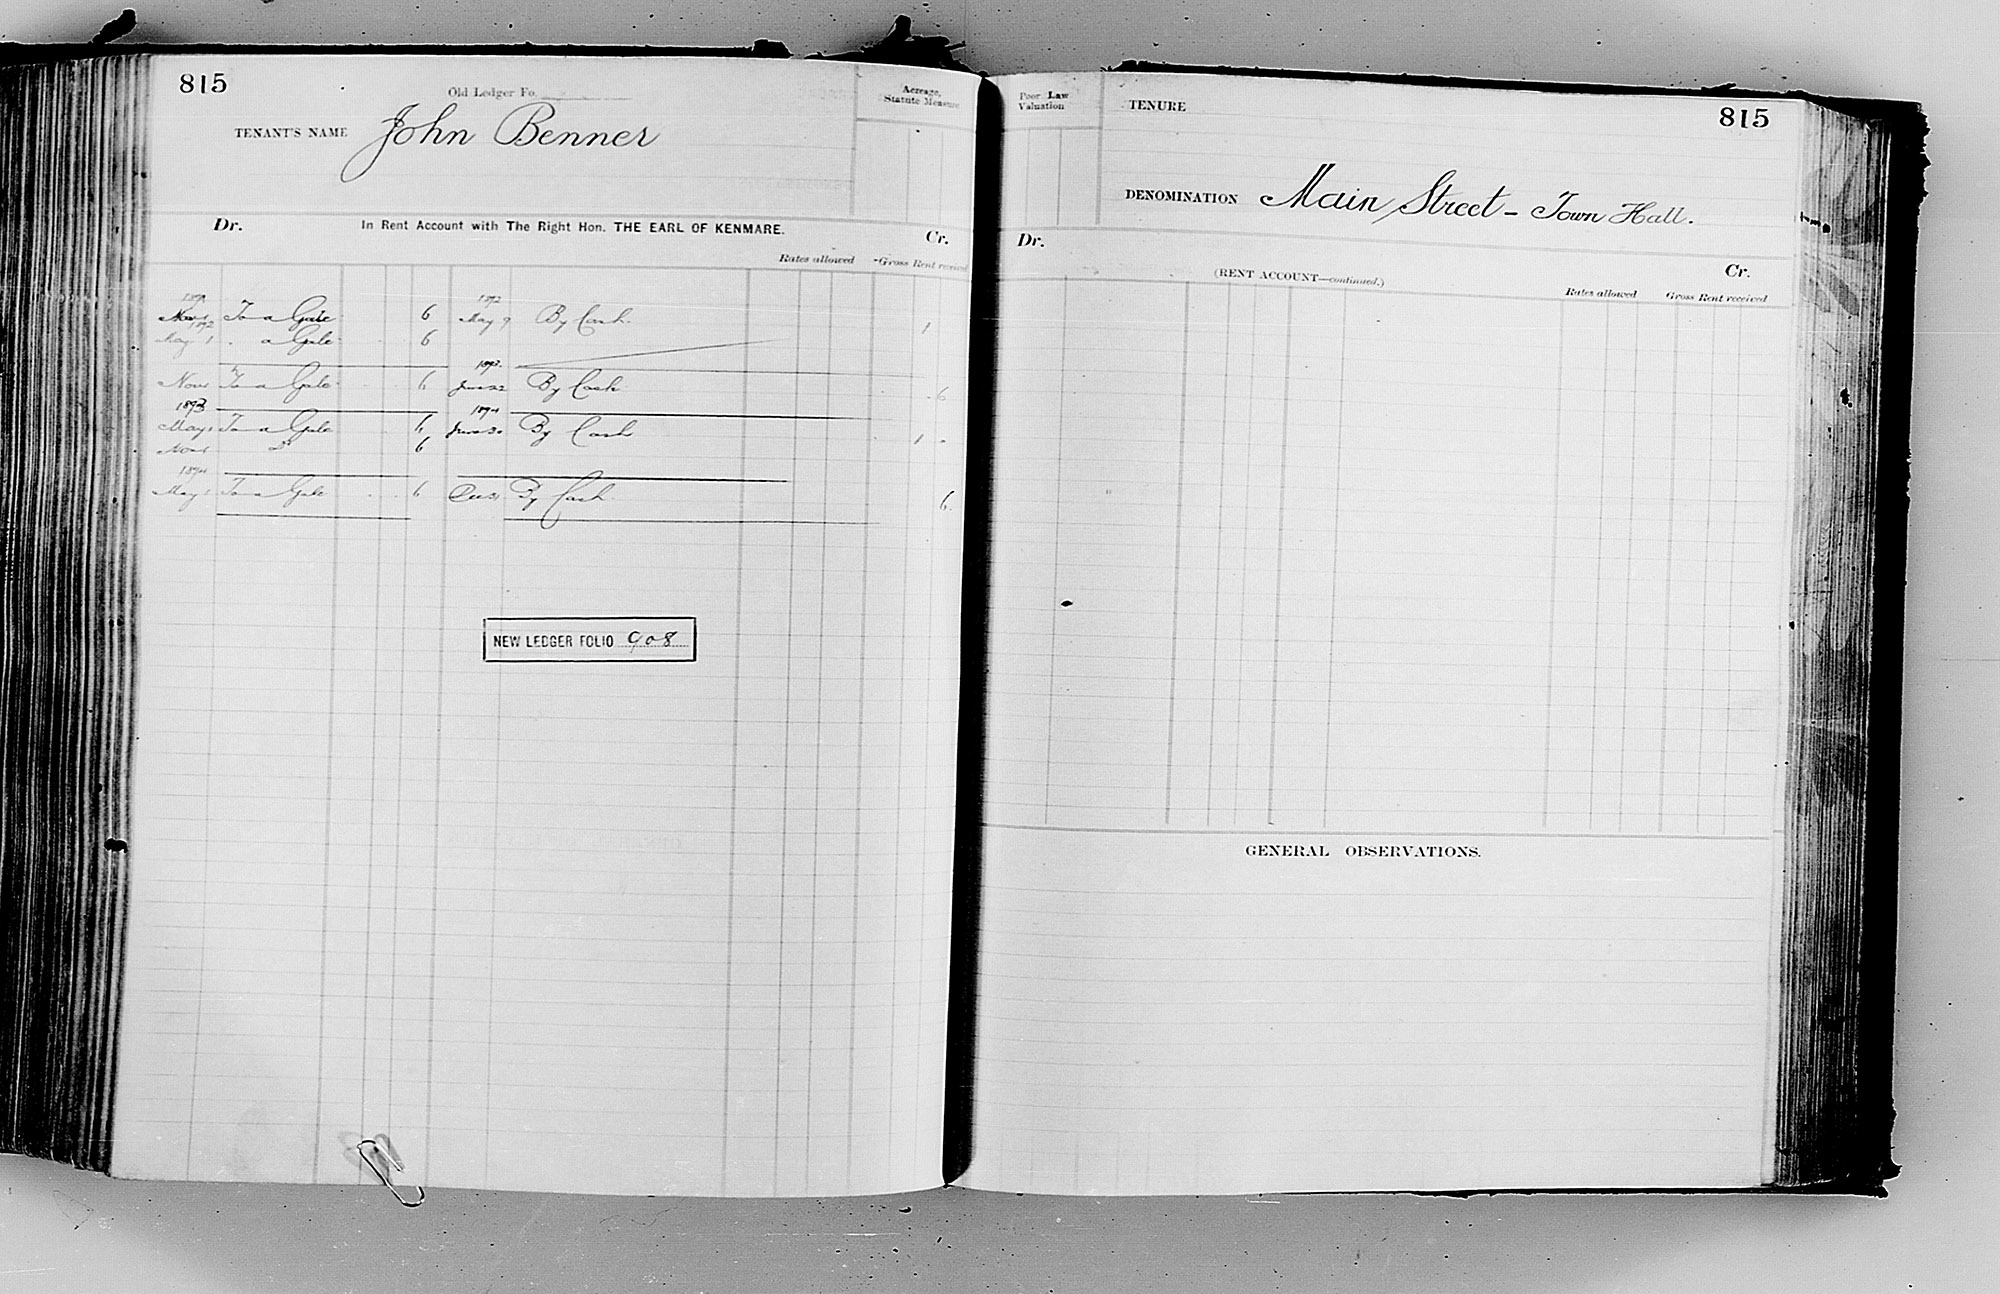 815
Old Ledger Fo.
Acreage,
Statute Measure
TENANT'S NAME John Benner
Dr. In Rent Account with The Right Hon. THE EARL OF KENMARE. Cr.
Rates allowed Gross Rent received
1892
To a Gale 6 May 9 By Cash 1
1892
May 1 a Gale 6
1893
Nov To a Gale 6 June 22 By Cash 6
1893 1894
May 1 To a Gale 6 June 30 By Cash 1
Nov 1 Do 6
1894
May 1 To a Gale 6 Dec 31 By Cash 6
NEW LEDGER FOLIO 908
Poor Law
Valuation
TENURE
815
DENOMINATION Main Street - Town Hall.
Dr.
(RENT ACCOUNT—continued.)
Cr.
Rates allowed Gross Rent received
GENERAL OBSERVATIONS.